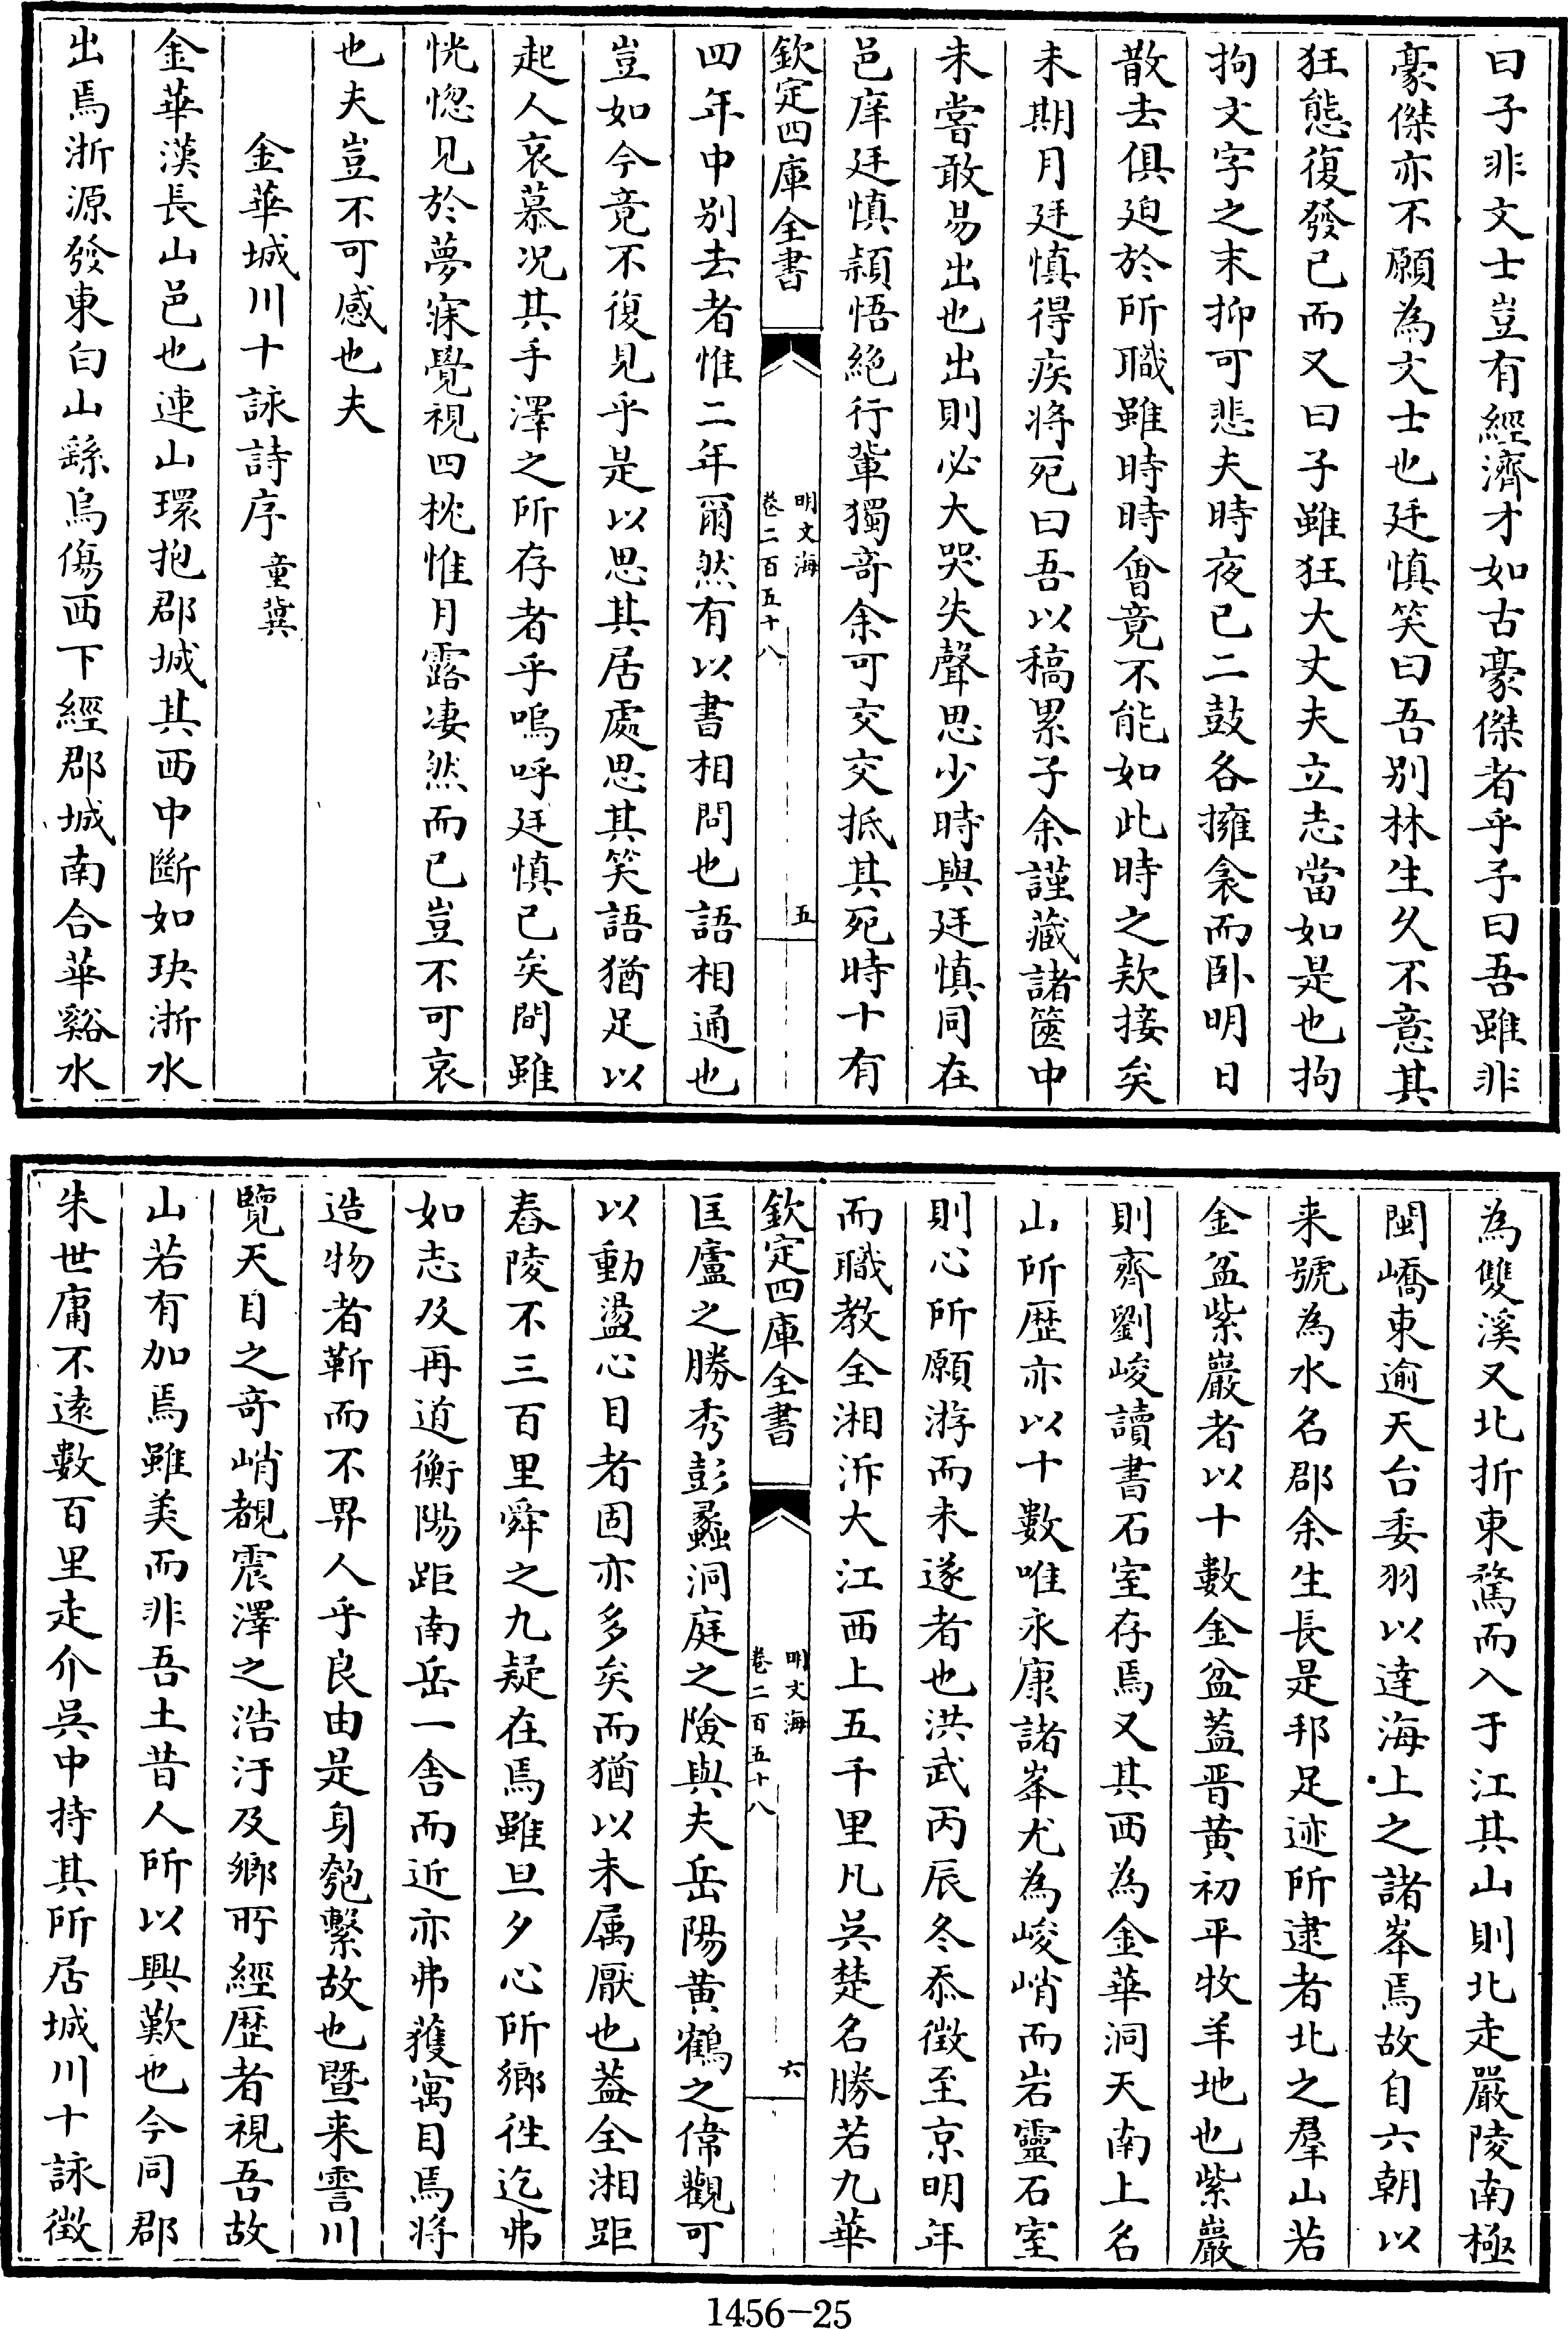 曰子非文士豈有經濟才如古豪傑者乎子曰吾雖非
豪傑亦不願為文士也廷慎笑曰吾别林生久不意其
狂態復發已而又曰子雖狂大丈夫立志當如是也拘
拘文字之末抑可悲夫時夜已二鼓各擁衾而卧明日
散去俱廹於所職雖時時會竟不能如此時之欵接矣
未期月廷慎得疾将死曰吾以稿累子余謹藏諸篋中
未嘗敢易出也出則必大哭失聲思少時與廷慎同在
邑庠廷慎頴悟絶行軰獨竒余可交交抵其死時十有
欽定四庫全書
明文海
卷二百五十八
五
四年中别去者惟二年爾然有以書相問也語相通也
豈如今竟不復見乎是以思其居處思其笑語猶足以
起人哀慕况其手澤之所存者乎嗚呼廷慎已矣間雖
恍惚见於夢寐覺視四枕惟月露凄然而已豈不可哀
也夫豈不可感也夫
金華城川十詠詩序 童冀
金華漢長山邑也連山環抱郡城其西中斷如玦浙水
出焉浙源發東白山繇烏傷西下經郡城南合華谿水
為雙溪又北折東騖而入于江其山則北走嚴陵南極
閩嶠東逾天台委羽以達海上之諸峯焉故自六朝以
来號為水名郡余生長是邦足迹所逮者北之羣山若
金盆紫巖者以十數金盆葢晋黄初平牧羊地也紫巖
則齊劉峻讀書石室存焉又其西為金華洞天南上名
山所歴亦以十數唯永康諸峯尤為峻峭而岩靈石室
則心所願游而未遂者也洪武丙辰冬忝徴至京明年
而職教全湘泝大江西上五千里凡吳楚名勝若九華
欽定四庫全書
明文海
卷二百五十八
六
匡廬之勝秀彭蠡洞庭之險與夫岳陽黄鶴之偉觀可
以動盪心目者固亦多矣而猶以未属厭也葢全湘距
舂陵不三百里舜之九疑在焉雖旦夕心所鄉徃迄弗
如志及再道衡陽距南岳一舍而近亦弗獲寓目焉将
造物者靳而不畀人乎良由是身匏繫故也暨来霅川
覽天目之竒峭覩震澤之浩汙及鄉所經歴者視吾故
山若有加焉雖美而非吾土昔人所以興歎也今同郡
朱世庸不逺數百里走介吳中持其所居城川十詠徴
1456-25